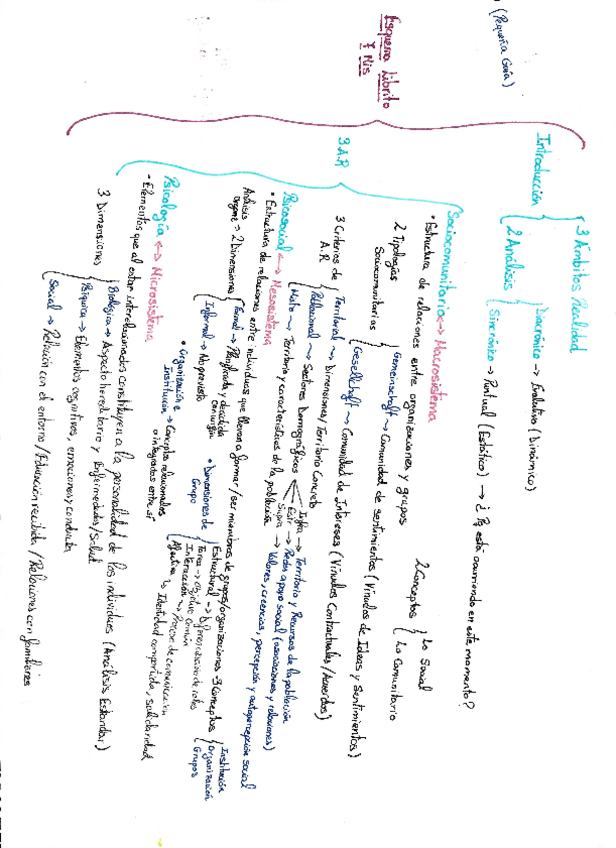 (Pequeña Guía)
Esquema Librito
Y Nis
Introducción
3 Ámbitos Realidad
2 Análisis
Diacrónico → Evolutivo (Dinámico)
Sincrónico → Puntual (Estático) → ¿ Pq está ocurriendo en este momento?
3 A.R
Sociocomunitaria ↔ Macrosistema
• Estructura de relaciones entre organizaciones y grupos
2 Conceptos
Lo Social
Lo Comunitario
2 Tipologías
Sociocomunitarias
Gemeinschaft → Comunidad de sentimientos (Vínculos de Ideas y Sentimientos)
Gesellschaft → Comunidad de Intereses (Vínculos Contractuales/Acuerdos)
3 Criterios de
A.R
Territorial → Dimensiones/Territorio Concreto
Relacional → Sectores Demográficos
→ Territorio y características de la población
Infra → Territorio y Recursos de la población
Estr → Redes apoyo social (asociaciones y relaciones)
Supra → Valores, creencias, percepción y autopercepción social
Psicosocial ↔ Mesosistema
• Estructura de relaciones entre individuos que llevan a formar/ser miembros de grupos/organizaciones
3 Conceptos
Institución
Organización
Grupos
Análisis
→ 2 Dimensiones
Formal → Planificada y decidida
Informal → No previsto
• Organización e
Institución → Conceptos relacionados
o integrados entre sí
• Dimensiones de
Grupo
Estructural → Diferenciación de roles
Tarea → Objetivo Común
Interacción → Proceso de comunicación
Afectiva → Identidad compartida, solidaridad
Psicología ↔ Microsistema
- Elementos que al estar interrelacionados constituyen a la personalidad de los individuos (Análisis Estandar)
3 Dimensiones
Biológica → Aspecto hereditario y Enfermedades/Salud
Psíquica → Elementos cognitivos, emociones y conducta
Social → Relación con el entorno / Educación recibida / Relaciones con familiares